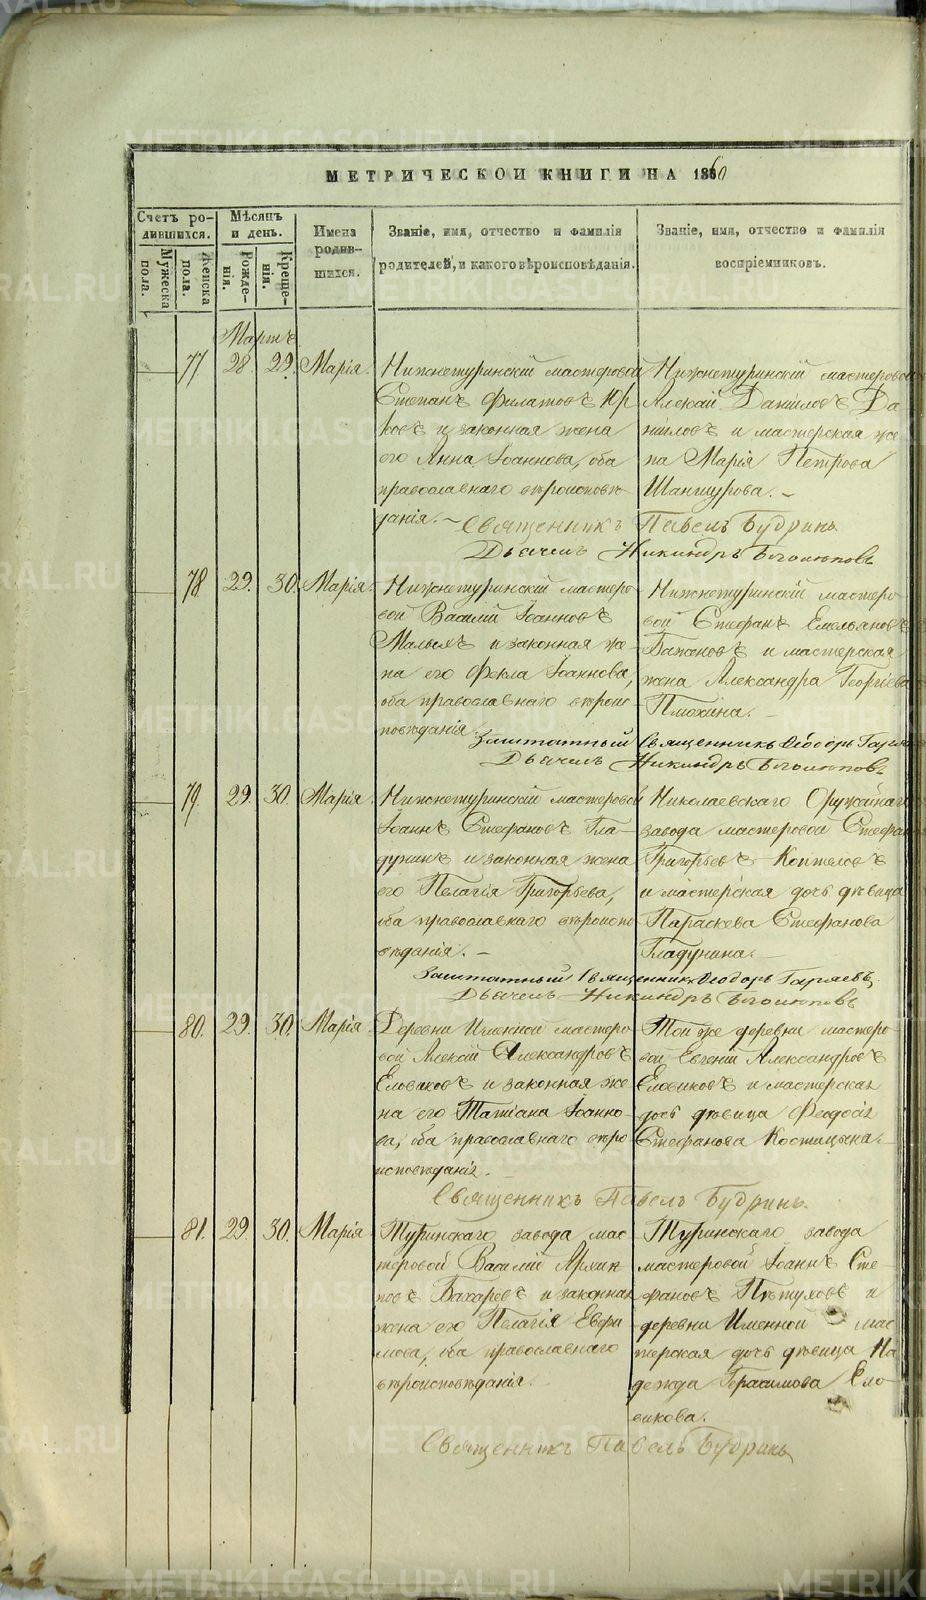 МЕТРИЧЕСКОЙ КНИГИ НА 1860
Счетъ родившихся.
Мѣсяцъ и день.
Имена родившихся.
Званіе, имя, отчество и фамилія родителей, и какого вѣроисповѣданія.
Званіе, имя, отчество и фамилія воспріемниковъ.
Мужеска пола.
Женска пола.
Рожденія.
Крещенія.
Мартъ
77 28 29 Марія.
Нижнетуринскій мастеровой
Степанъ Филатовъ Юр
ковъ и законная жена
его Анна Іоаннова, оба
православнаго вѣроисповѣ
данія. –
Нижнетуринскій мастеровой
Алексай Даниловъ Да
ниловъ и мастерская же
на Марія Петрова
Шаншурова. –
Священникъ Павелъ Будринъ.
Дьячекъ Никандръ Боголюповъ
78 29. 30. Марія.
Нижнетуринскій мастеро
вой Василій Іоанновъ
Малыхъ и законная же
на его Фекла Іоаннова,
оба православнаго вѣроис
повѣданія.
Нижнетуринскій мастеро
вой Стефанъ Емельяновъ
Бажановъ и мастерская
жена Александра Георгіева
Плюхина. –
Заштатный Священникъ Ѳеодоръ
Дьячекъ Никандръ Боголюповъ
79. 29. 30. Марія
Нижнетуринскій мастеровой
Іоаннъ Стефановъ Гла–
дунинъ и законная жена
его Пелагія Григорьева,
оба православнаго вѣроиспо
вѣданія. –
Николаевскаго Оружейнаго
завода мастеровой Стефанъ
Григорьевъ Коптеловъ
и мастерская дочь дѣвица
Параскева Стефанова
Гладунина. –
Заштатный Священникъ Ѳеодоръ Гаряевъ,
Дьячекъ Никандръ Боголюповъ
80. 29. 30. Марія.
Деревни Именной мастеро
вой Алексій Александровъ
Еловиковъ и законная же
на его Татіана Іоанно–
ва, оба православнаго вѣро
исповѣданія.
Той же деревни мастеро
вой Евгеній Александровъ
Еловиковъ и мастерская
дочь дѣвица Феодосія
Стефанова Костицына. –
Священникъ Павелъ Будринъ.
81. 29. 30. Марія
Туринскаго завода мас
теровой Василій
Бахаревъ и законная
жена его Пелагія Евфи
мова, оба православнаго
вѣроисповѣданія.
Туринскаго завода
мастеровой Іоаннъ Сте
фановъ Пѣтуховъ и
деревни Именной мас
терская дочь дѣвица На
дежда Герасимова Ело
викова.
Священникъ Павелъ Будринъ
METRIKI.GASO-URAL.RU